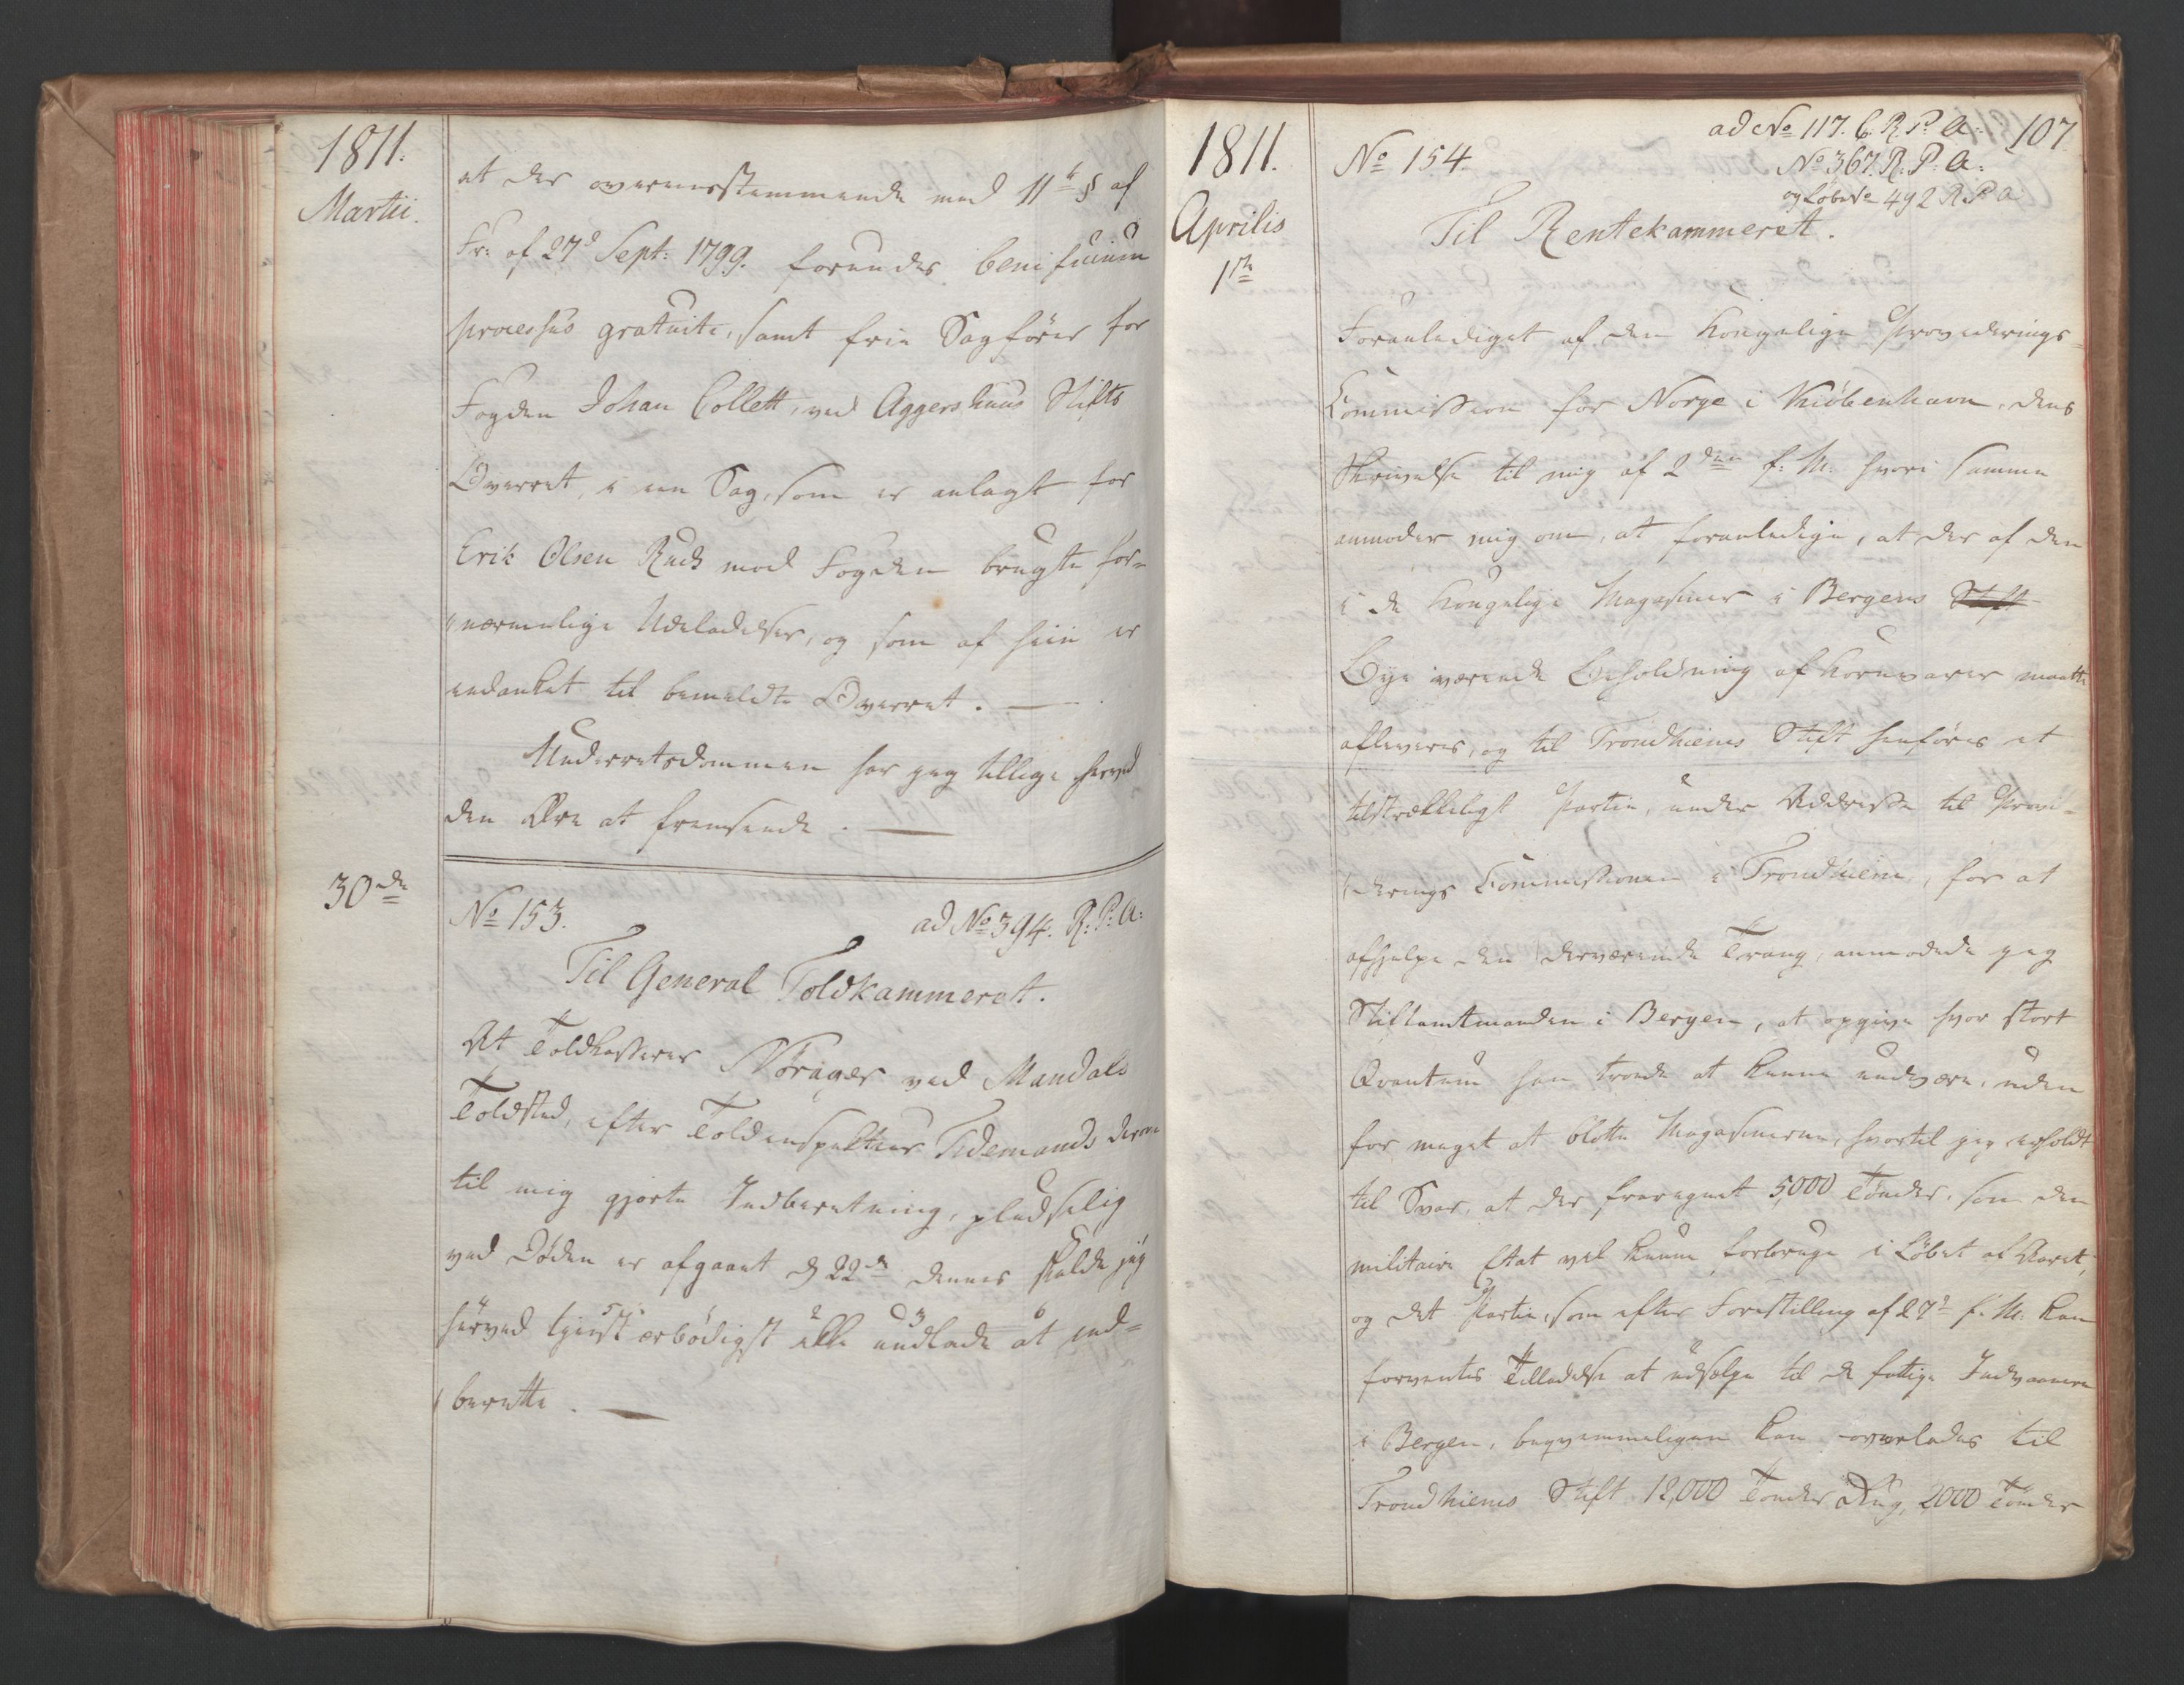 1811.
Martii.
at der overeensstemmende med 11te § af
Fr: af 27d Sept: 1799. forundes beneficium
processus gratuiti, samt frie Sagfører for
Fogden Johan Collett, ved Aggershuus Stifts
Overret, i een Sag, som er anlagt for
Erik Olsen Ruds mod Fogden brugte for-
nærmelige Udeladelser, og som af hiin er
indanket til bemeldte Overret. —
Underretsdommen har jeg tillige herved
den Ære at fremsende. —
30de
No 153.
ad No 394. R: P: A:
Til General Toldkammeret.
At Toldkasserer Nørager ved Mandals
Toldsted, efter Toldinspekteur Tidemands derom
til mig gjorte Indberetning, pludselig
ved Døden er afgaaet d 22de dennes skulde jeg
herved tjenst ærbødigst ikke undlade at ind-
berette. —
1811.
Aprilis
1ste
No 154.
ad No 117. C. R. P. A:
107
No 367. R. P. A:
og Løbe No 492 R. P. A
Til Rentekammeret.
Foranlediget af den Kongelige Provideerings-
Commission for Norge i Kiøbenhavn, dens
Skrivelse til mig af 2den f: M: hvori samme
anmoder mig om, at foranledige, at der af den
i de Kongelige Magasiner i Bergens Stift
Bye værende Beholdning af Kornvarer maatte
afleveres, og til Trondhiems Stift henføres et
tilstrækkeligt Partie, under Addresse til Provi-
derings Commissionen i Trondhiem, for at
afhjelpe den derværende Trang, anmodede jeg
Stiftamtmanden i Bergen, at opgive hvor stort
Qvantum han troede at kunne undvære, uden
for meget at blotte Magasinerne, hvortil jeg erholdt
til Svar, at der fraregnet 5000 Tønder, som den
militaire Etat vel kunne forbruge i Løbet af Aaret,
og det Partie, som efter Forestilling af 27d f. M: kan
forventes Tilladelse at udsælge til de fattige Indvaanere
i Bergen, beqvemmeligen kan overlades til
Trondhiems Stift 12,000 Tønder Rug, 2000 Tønder